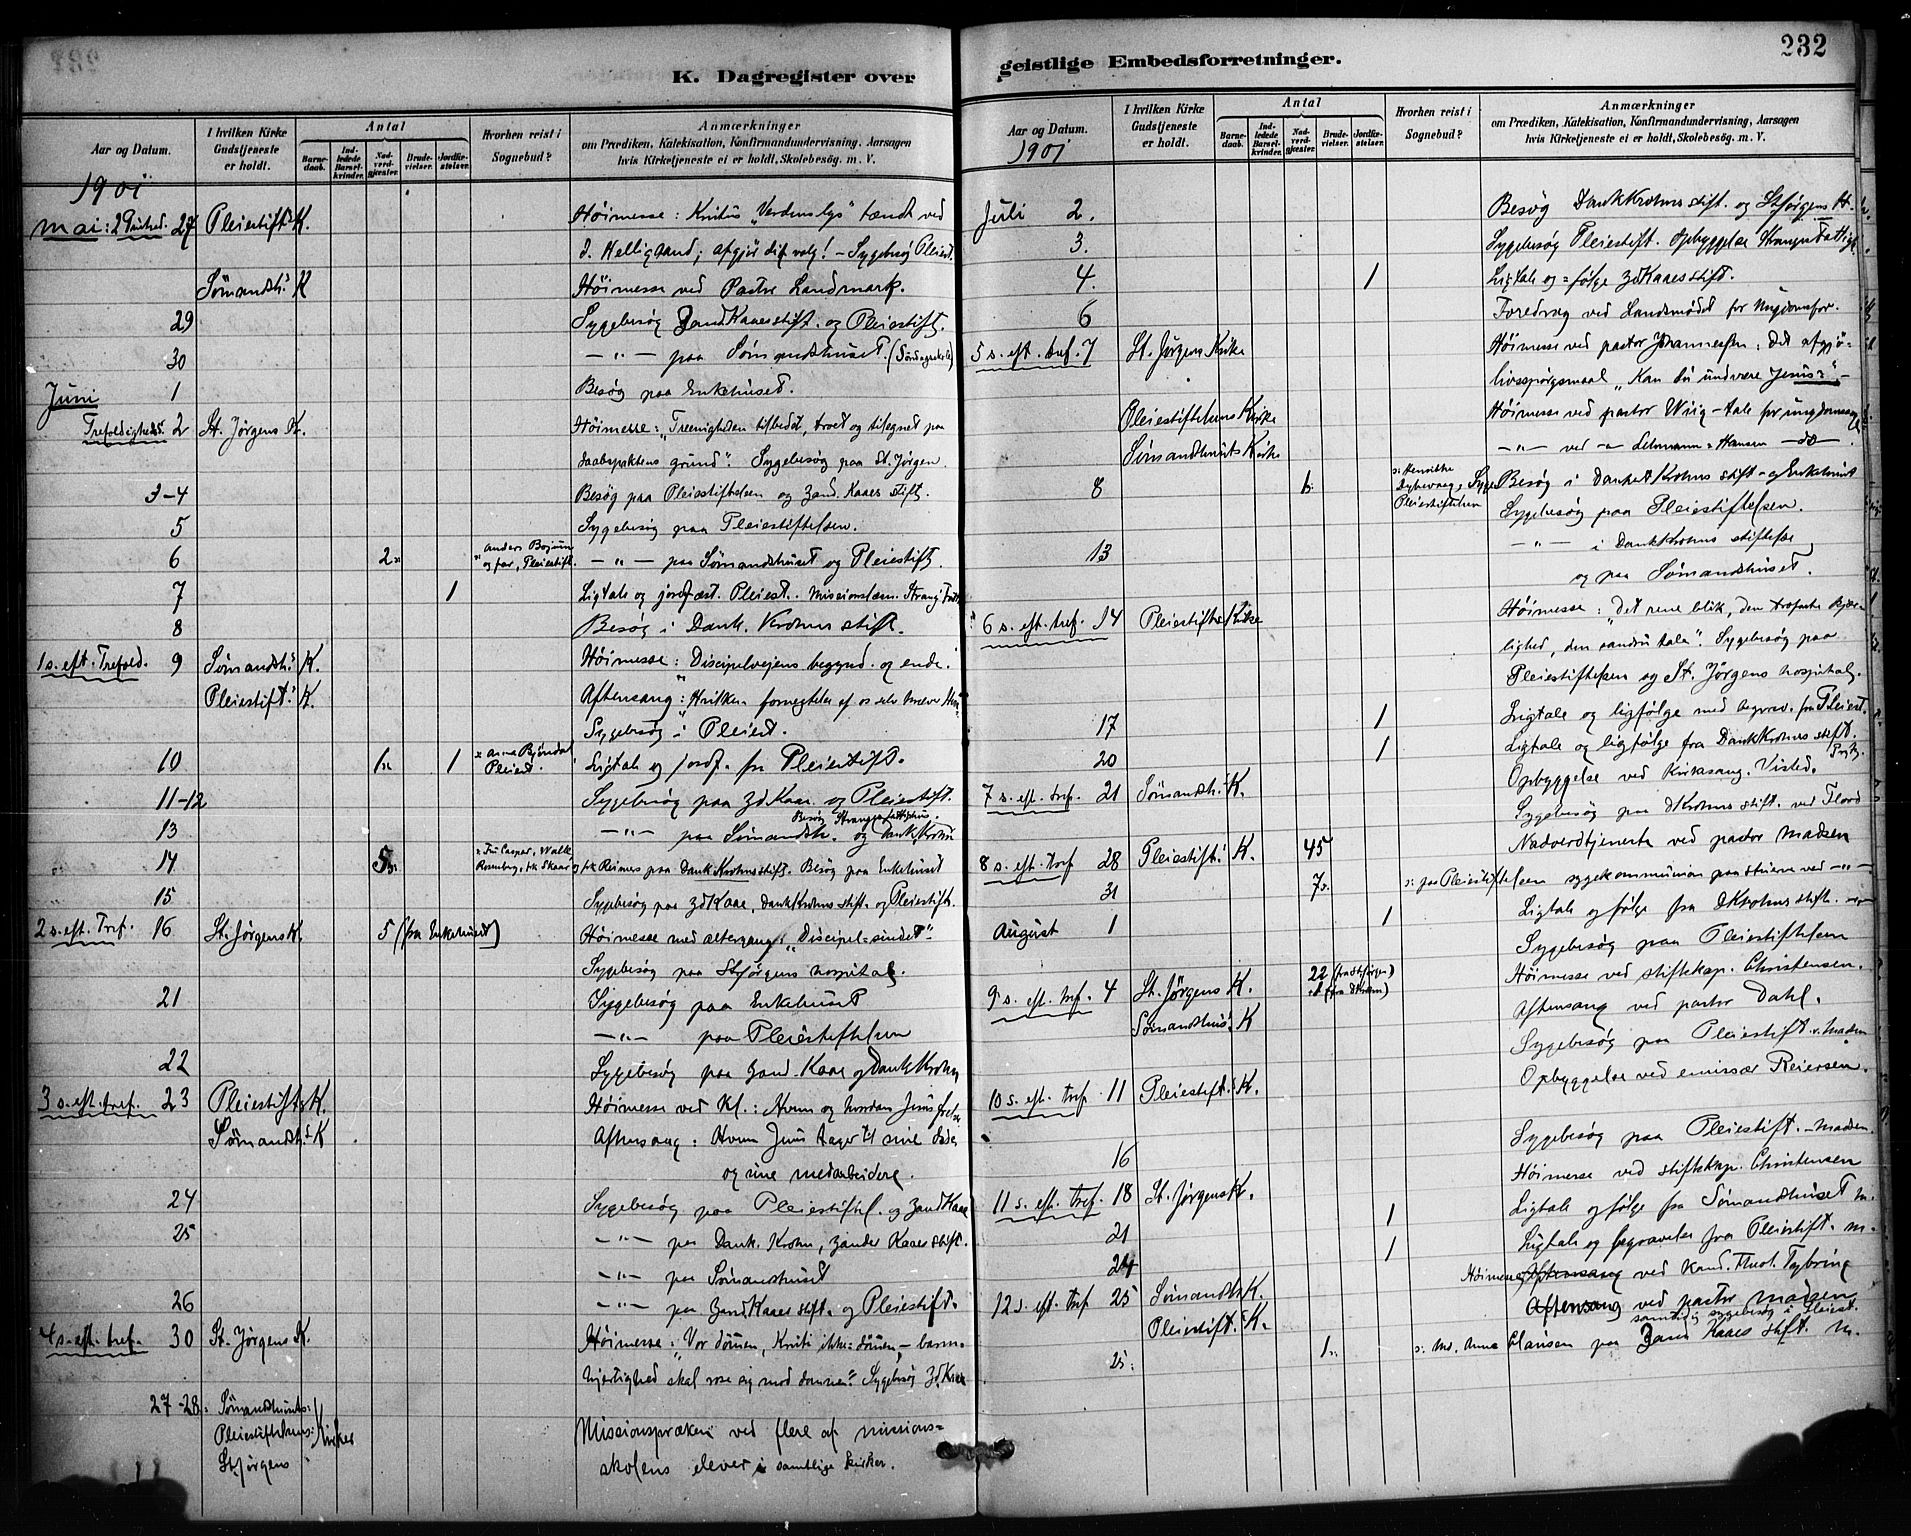 232
K. Dagregister over
Aar og Datum.
I hvilken Kirke Gudstjeneste er holdt.
Antal
Barnedaab.
Indledede Barselkvinder.
Nadverdgjester.
Brudevielser.
Jordfæstelser.
Hvorhen reist i Sognebud?
Anmærkninger
om Prædiken, Katekisation, Konfirmandundervisning, Aarsagen
hvis Kirketjeneste ei er holdt, Skolebesøg. m. V.
1901
Mai: 2 Pintsed. 27 Pleiestift. K. Høimesse: Kristus "Verdens lys" tændt ved
d. Helligaand; afgjør dit valg! – Sygebesøg Pleiest.
Sømandsh. K Høimesse ved Pastor Landmark.
29 Sygebesøg Zand Kaaes stift. og Pleiestift.
30 – " – paa Sømandshuset. (Søndagsskole)
Juni 1 Besøg paa Enkehuset.
Trefoldigheds 2 St. Jørgens K. Høimesse: "Treenigheden tilbedt, troet og tilegnet paa
daabspaktens grund". Sygebesøg paa St. Jørgen.
3-4 Besøg paa Pleiestiftelsen og Zand. Kaaes stift.
5 Sygebesøg paa Pleiestiftelsen.
6 2 Anders Bojum og far, Pleiestift. – " – paa Sømandshuset og Pleiestift.
7 1 Ligtale og jordfæst. Pleiest. Missionsfæn. Strang
8 Besøg i Dank. Krohns stift.
1 s. eft. Trefold. 9 Sømandsh. K. Høimesse: Discipelveiens begynd. og ende.
Pleiestift. K. Aftensang:
Sygebesøg i Pleiest.
10 1 1 Anna Bjøndal Pleiest. Ligtale og jordf. fra Pleiestift.
11-12 Sygebesøg paa Zd Kaae. og Pleiestift.
Besøg Stranges fattighus.
13 – " – paa Sømandsh. og Dank Krohn
14 5 Fru Casper, Walle Ronneberg, frk Skaar og frk Reimers paa Dank Krohns stift. Besøg paa Enkehuset
15 Sygebesøg paa Zd Kaae, Dank Krohns stift. og Pleiestift.
2 s. eft. Tref. 16 St. Jørgens K. 5 (fra Enkehuset) Høimesse med altergang: "Discipel-sindet".
Sygebesøg paa St Jørgens hospital.
21 Sygebesøg paa Enkehuset
– " – paa Pleiestiftelsen
22 Sygebesøg paa Zand. Kaae og Dank Krohn
3 s. eft. tref. 23 Pleiestift K. Høimesse ved Kl.: Hvem og hvordan Jesus frelse
Sømandsh. K Aftensang: Hvem Jesus tager til sine
og sine medarbeidere.
24 Sygebesøg paa Pleiestiftel. og Zand Kaae
25 – " – paa Dank. Krohn, Zander Kaaes stift.
– " – paa Sømandshuset
26 – " – paa Zand Kaaes stift. og Pleiestift.
4 s. eft. tref. 30 St. Jørgens K. Høimesse: "Vor dømen, Kristi ikke-dømen, – barm-
hjertighed skal rose sig mod dommen". Sygebesøg Zd Kaae
27-28: Sømandshusets:
Pleiestiftelsens: Kirker Missionspræken ved flere af missions-
St Jørgens skolens elever i samtlige kirker.
geistlige Embedsforretninger.
Aar og Datum.
I hvilken Kirke Gudstjeneste er holdt.
Antal
Barnedaab.
Indledede Barselkvinder.
Nadverdgjester.
Brudevielser.
Jordfæstelser.
Hvorhen reist i Sognebud?
Anmærkninger
om Prædiken, Katekisation, Konfirmandundervisning, Aarsagen
hvis Kirketjeneste ei er holdt, Skolebesøg. m. V.
1901
Juli 2. Besøg Dank Krohns stift. og St Jørgens H.
3. Sygebesøg Pleiestift. Opbyggelse Stranges Fattigh.
4. 1 Ligtale og = følge Zd Kaaes stift.
6 Foredrag ved Landsmødet for Ungdomsfor.
5 s. eft. tref. 7 St. Jørgens Kirke Høimesse ved pastor Johannessen: Det afgjø-
livsspørgsmaal "Kan du undvære Jesus?" –
Pleiestiftelsens Kirke Høimesse ved pastor Wiig – tale for ungdommen
Sømandshusets Kirke – " – ved – Lehmann-Hansen – do – .
8 Henrikke Dybevaag, Pleiestiftelsen Besøg i Dankert Krohns stift – og Enkehuset
Sygebesøg paa Pleiestiftelsen.
13 – " – i Dank Krohns stiftelse
og paa Sømandshuset.
6 s. eft. tref. 14 Pleiestifts Kirke Høimesse: "Det rene blik, den trofaste kjær-
lighed, den sandru tale". Sygebesøg paa
Pleiestiftelsen og St. Jørgens hospital.
17 1 Ligtale og ligfølge med begrav. fra Pleiest.
20 1 Ligtale og ligfølge fra Dank Krohns stift.
7 s. eft. tref. 21 Sømandsh. K. Opbyggelse ved Kirkesang. Visted.
Sygebesøg paa D Krohns stift. ved Flood
8 s. eft. tref 28 Pleiestift. K. 45 Nadverdtjeneste ved pastor Madsen
31 7 paa Pleiestiftelsen sygekommunion paa stuerne ved – " –
August 1 1 Ligtale og følge fra D Krohns stift. – " –
Sygebesøg paa Pleiestiftelsen
9 s. eft. tref. 4 St. Jørgens K. 22 (fra St Jørgen) (fra D Krohn) Høimesse ved stiftskap. Christensen.
Sømandshus. K Aftensang ved pastor Dahl.
Sygebesøg paa Pleiestift. v. Madsen
10 s. eft. tref. 11 Pleiestift. K. Opbyggelse ved emissær Reiersen.
16 Sygebesøg paa Pleiestift. – Madsen.
11 s. eft. tref. 18 St. Jørgens K. Høimesse ved stiftskap. Christensen
21 1 Ligtale og følge fra Sømandshuset M.
24 1 Ligtale og begravelse fra Pleiestift. M.
12 s. eft. tref 25 Sømandsh K. Høimesse Aftensang ved Kand. theol. Tybring
Pleiestift. K. Aftensang ved pastor Madsen
samtidig sygebesøg i Pleiest.
25: 1 Md. Anna Clausen paa Zand Kaaes stift. M.